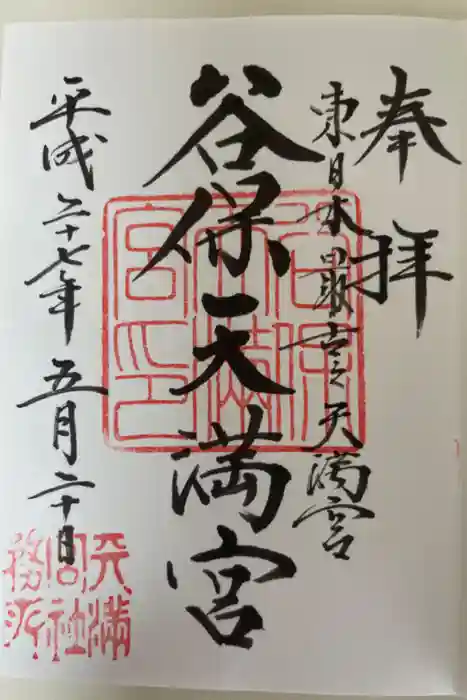 奉拝
東日本最古天満宮
谷保天満宮
平成二十七年五月二十日
谷保天満宮印
天満宮社務所